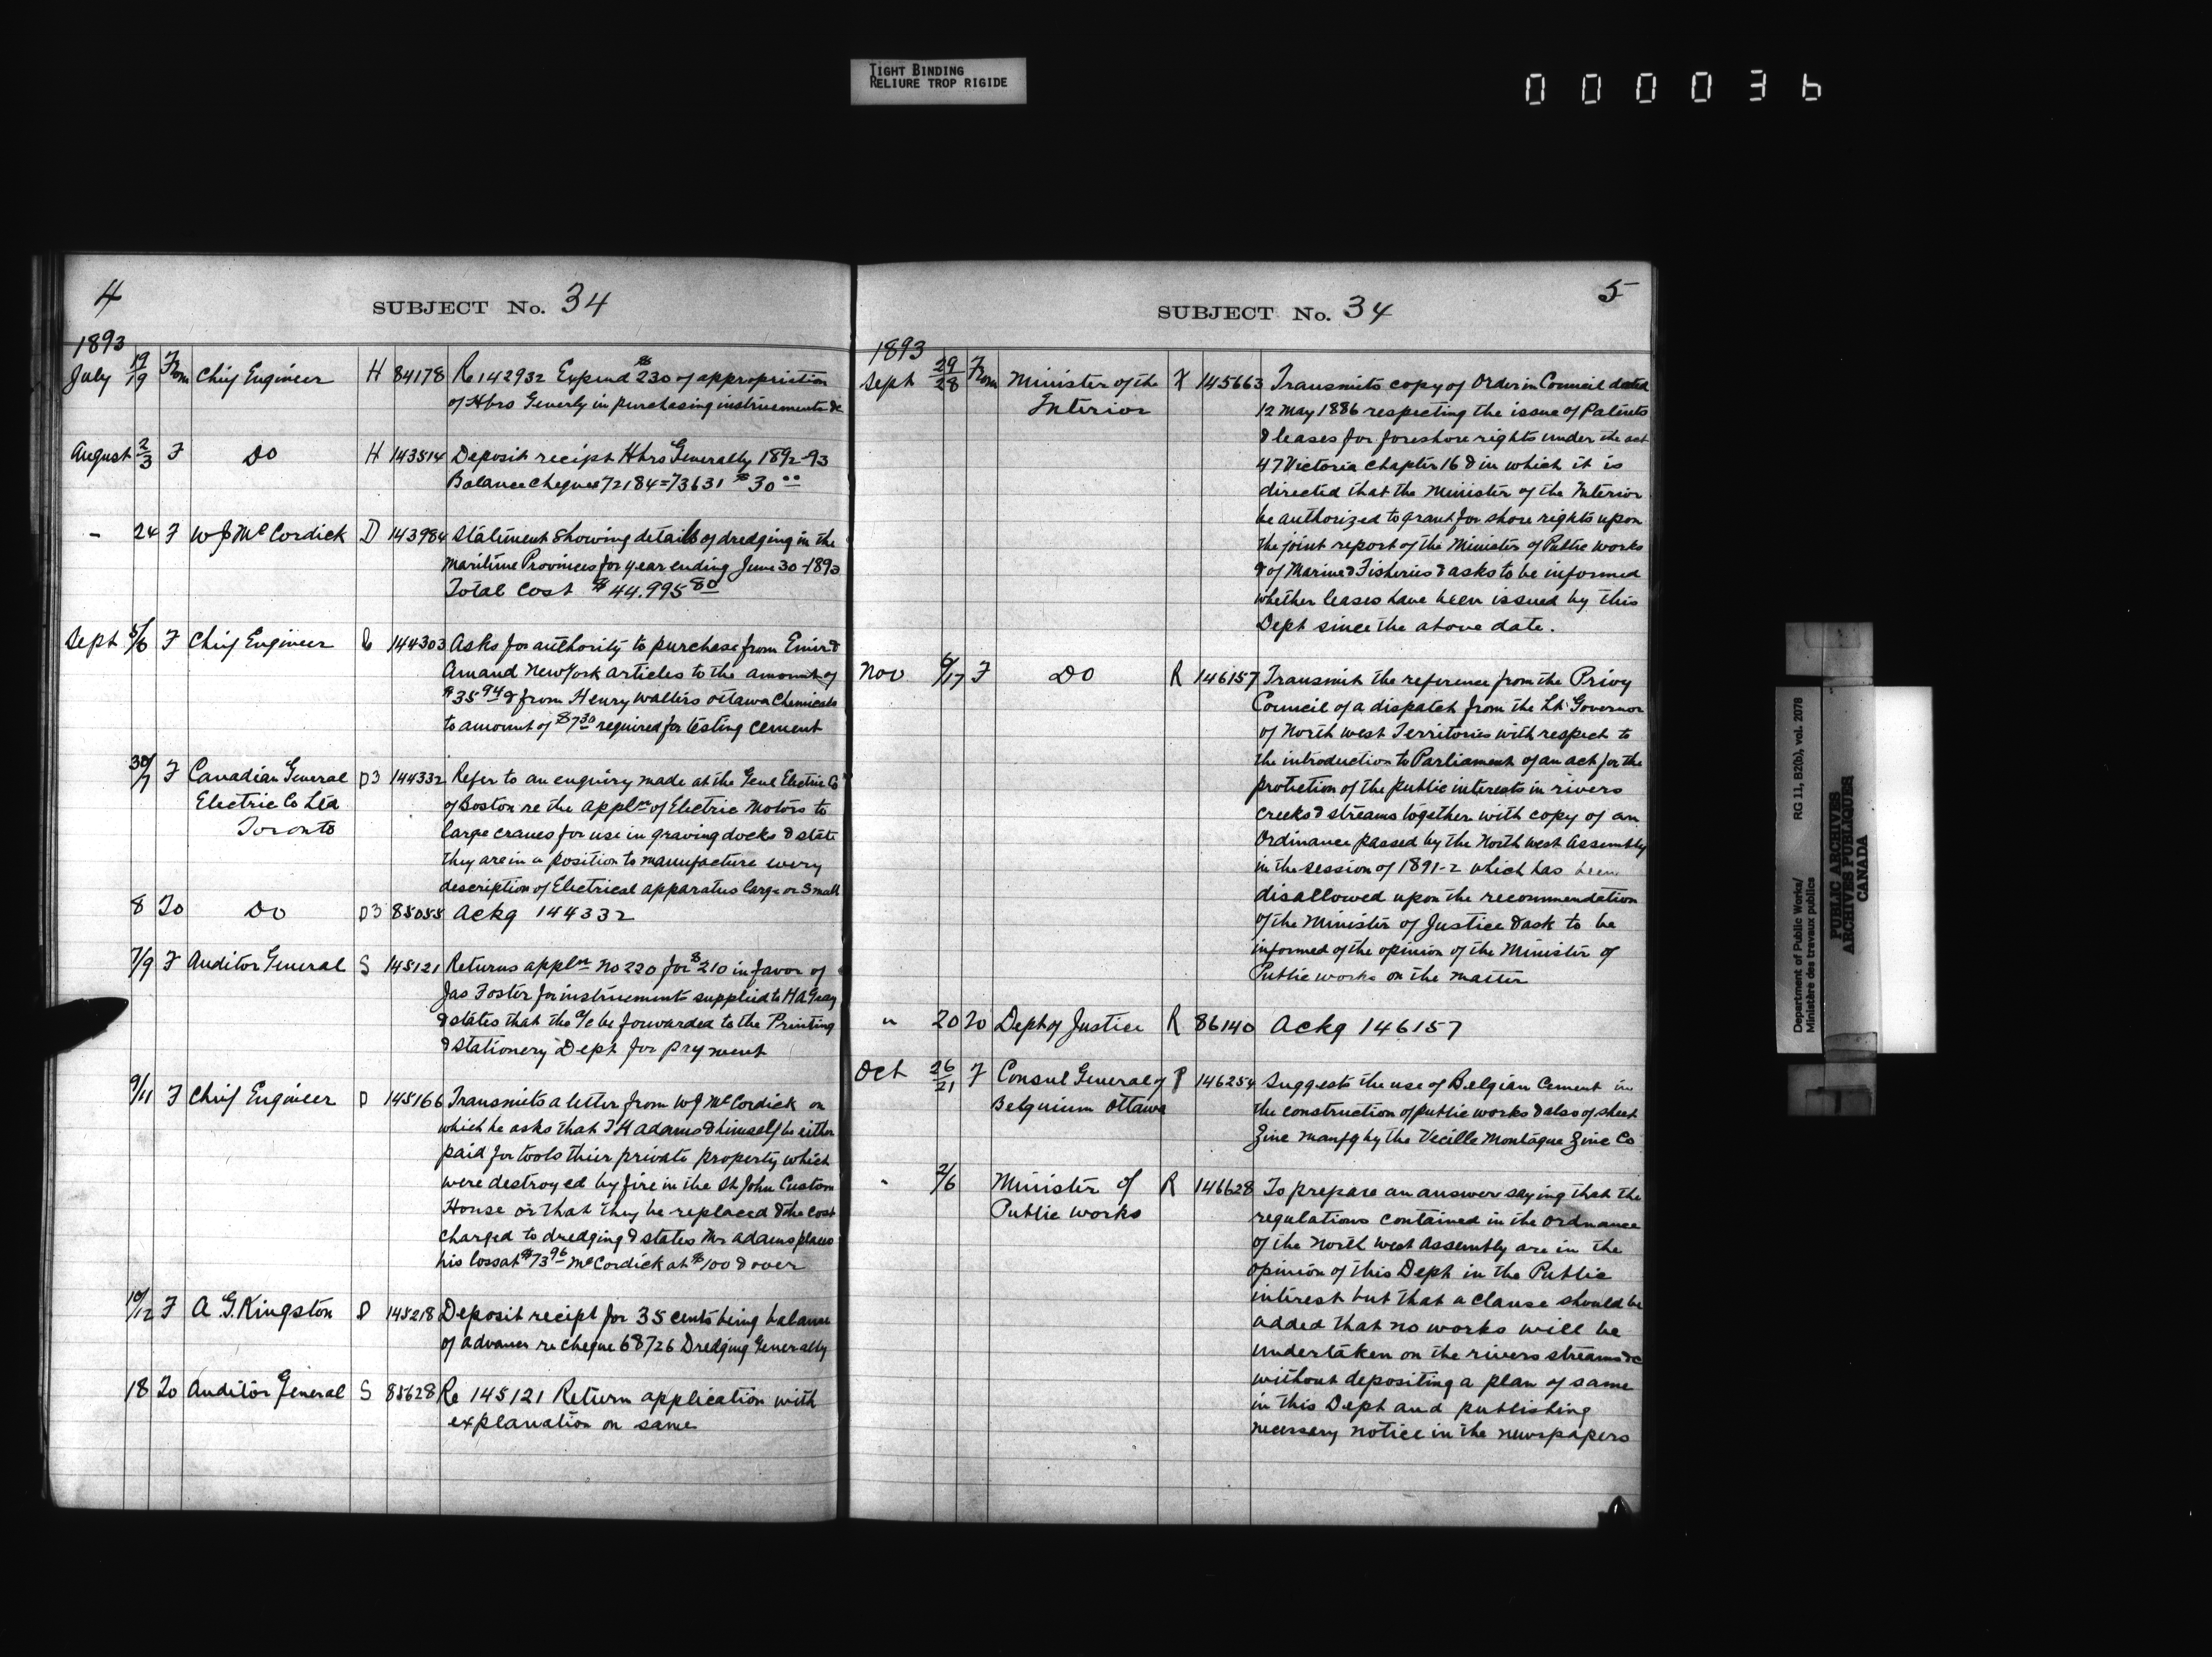 TIGHT BINDING
RELIURE TROP RIGIDE
000036
4
SUBJECT No. 34
1893
July 19/19 From Chief Engineer H 84178 Re 142932 Expend $230 of appropriation
of Hbrs Generly in purchasing instruements &c
August 2/3 F Do H 143514 Deposit recipt Hbrs Generally 1892-93
Balance cheques 72184=73631 $30 00
- 24 F W J McCordick D 143984 Statement showing details of dredging in the
Maritime Provinces for year ending June 30-1893
Total Cost $44.995 80
Sept 5/6 F Chief Engineer 144303 Asks for authority to purchase from Eimer &
Amand New York articles to the amount of
$35 94 & from Henry Watters Ottawa Chemicals
to amount of $7 30 required for testing cement
30/7 F Canadian General D3 144332 Refer to an enquiry made at the Genl Electric Co
Electric Co Ltd of Boston re the appln of Electric Motors to
Toronto large cranes for use in graving docks & state
they are in a position to manufacture every
description of Electrical apparatus large or small
8 To Do D3 85055 Ackg 144332
7/9 F Auditor General S 145121 Returns appln No 220 for $210 in favor of
Jas Foster for instruements supplied to H A Gray
& states that the a/c be forwarded to the Printing
& Stationery Dept for payment
9/11 F Chief Engineer D 145166 Transmits a letter from W J McCordick on
which he asks that T H Adams & himself be either
paid for tools thier private property which
were destroyed by fire in the St John Custom
House or that they be replaced & the cost
charged to dredging & states Mr Adams places
his loss at $73 96 McCordick at $100 & over
10/12 F A. G. Kingston D 145218 Deposit recipt for 35 cents being balance
of advance re cheque 68726 Dredging Generally
18 To Auditor General S 85628 Re 145121 Return application with
explanation on same
5
SUBJECT No. 34
1893
Sept 29/28 From Minister of the 145663 Transmits copy of Order in Council dated
Interior 12 May 1886 respecting the issue of Patents
& leases for foreshore rights under the act
47 Victoria Chapter 16 & in which it is
directed that the Minister of the Interior
be authorized to grant for shore rights upon
the joint report of the Minister of Public Works
& of Marine & Fisheries & asks to be informed
whether leases have been issued by this
Dept since the above date.
Nov 6/17 F Do R 146157 Transmit the reference from the Privy
Council of a dispatch from the Lt Governor
of North West Territories with respect to
the introduction to Parliament of an act for the
protection of the public interests in rivers
creeks & streams together with copy of an
Ordinance passed by the North West Assembly
in the session of 1891-2 which has been
disallowed upon the recommendation
of the Minister of Justice & ask to be
informed of the opinion of the Minister of
Public works on the matter
" 20 To Dept of Justice R 86140 Ackg 146157
Oct 26/21 F Consul General of P 146254 Suggests the use of Belgian Cement in
Belguium Ottawa the construction of public works & also of sheet
Zinc manfg by the Vecille Montague Zinc Co
" 2/6 Minister of R 146628 To prepare an answer saying that the
Public works regulations contained in the Ordnance
of the North West Assembly are in the
opinion of this Dept in the Public
interest but that a clause should be
added that no works will be
undertaken on the rivers streams &c
without depositing a plan of same
in this Dept and publishing
necessary notice in the newspapers
Department of Public Works/ RG 11, B2(b), vol. 2078
Ministère des travaux publics
PUBLIC ARCHIVES
ARCHIVES PUBLIQUES
CANADA